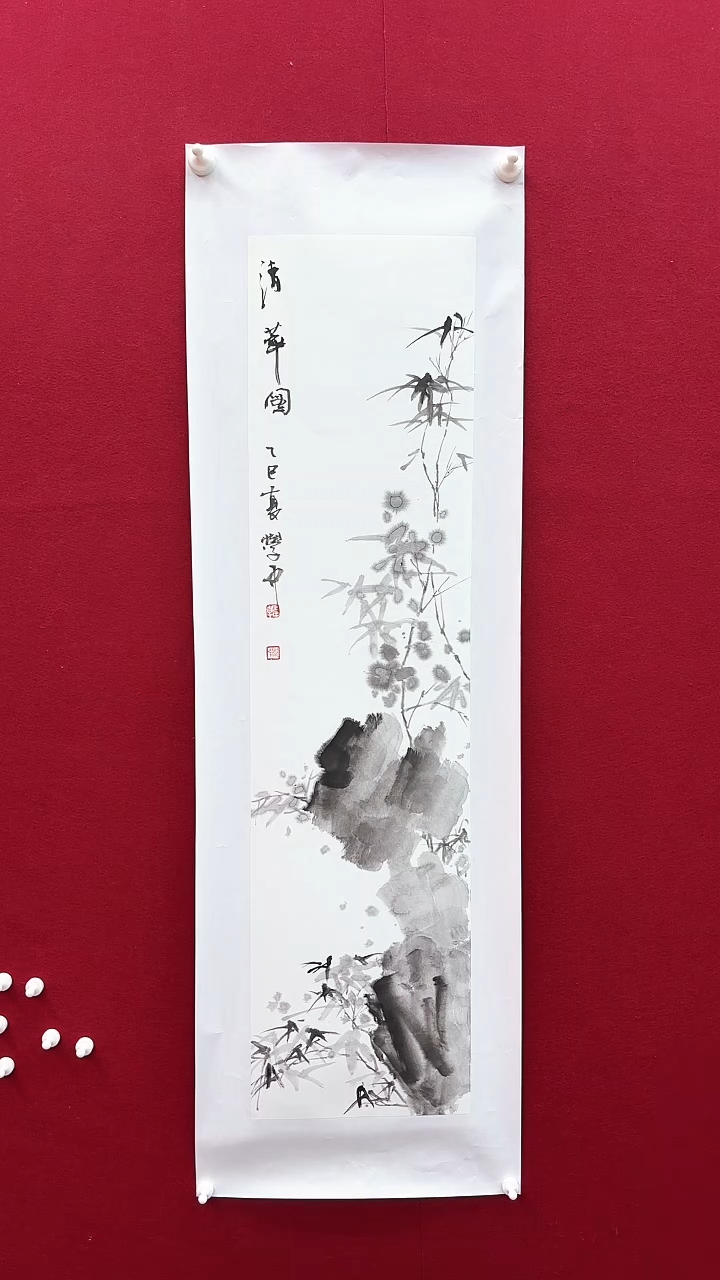 清華圖
乙巳夏學